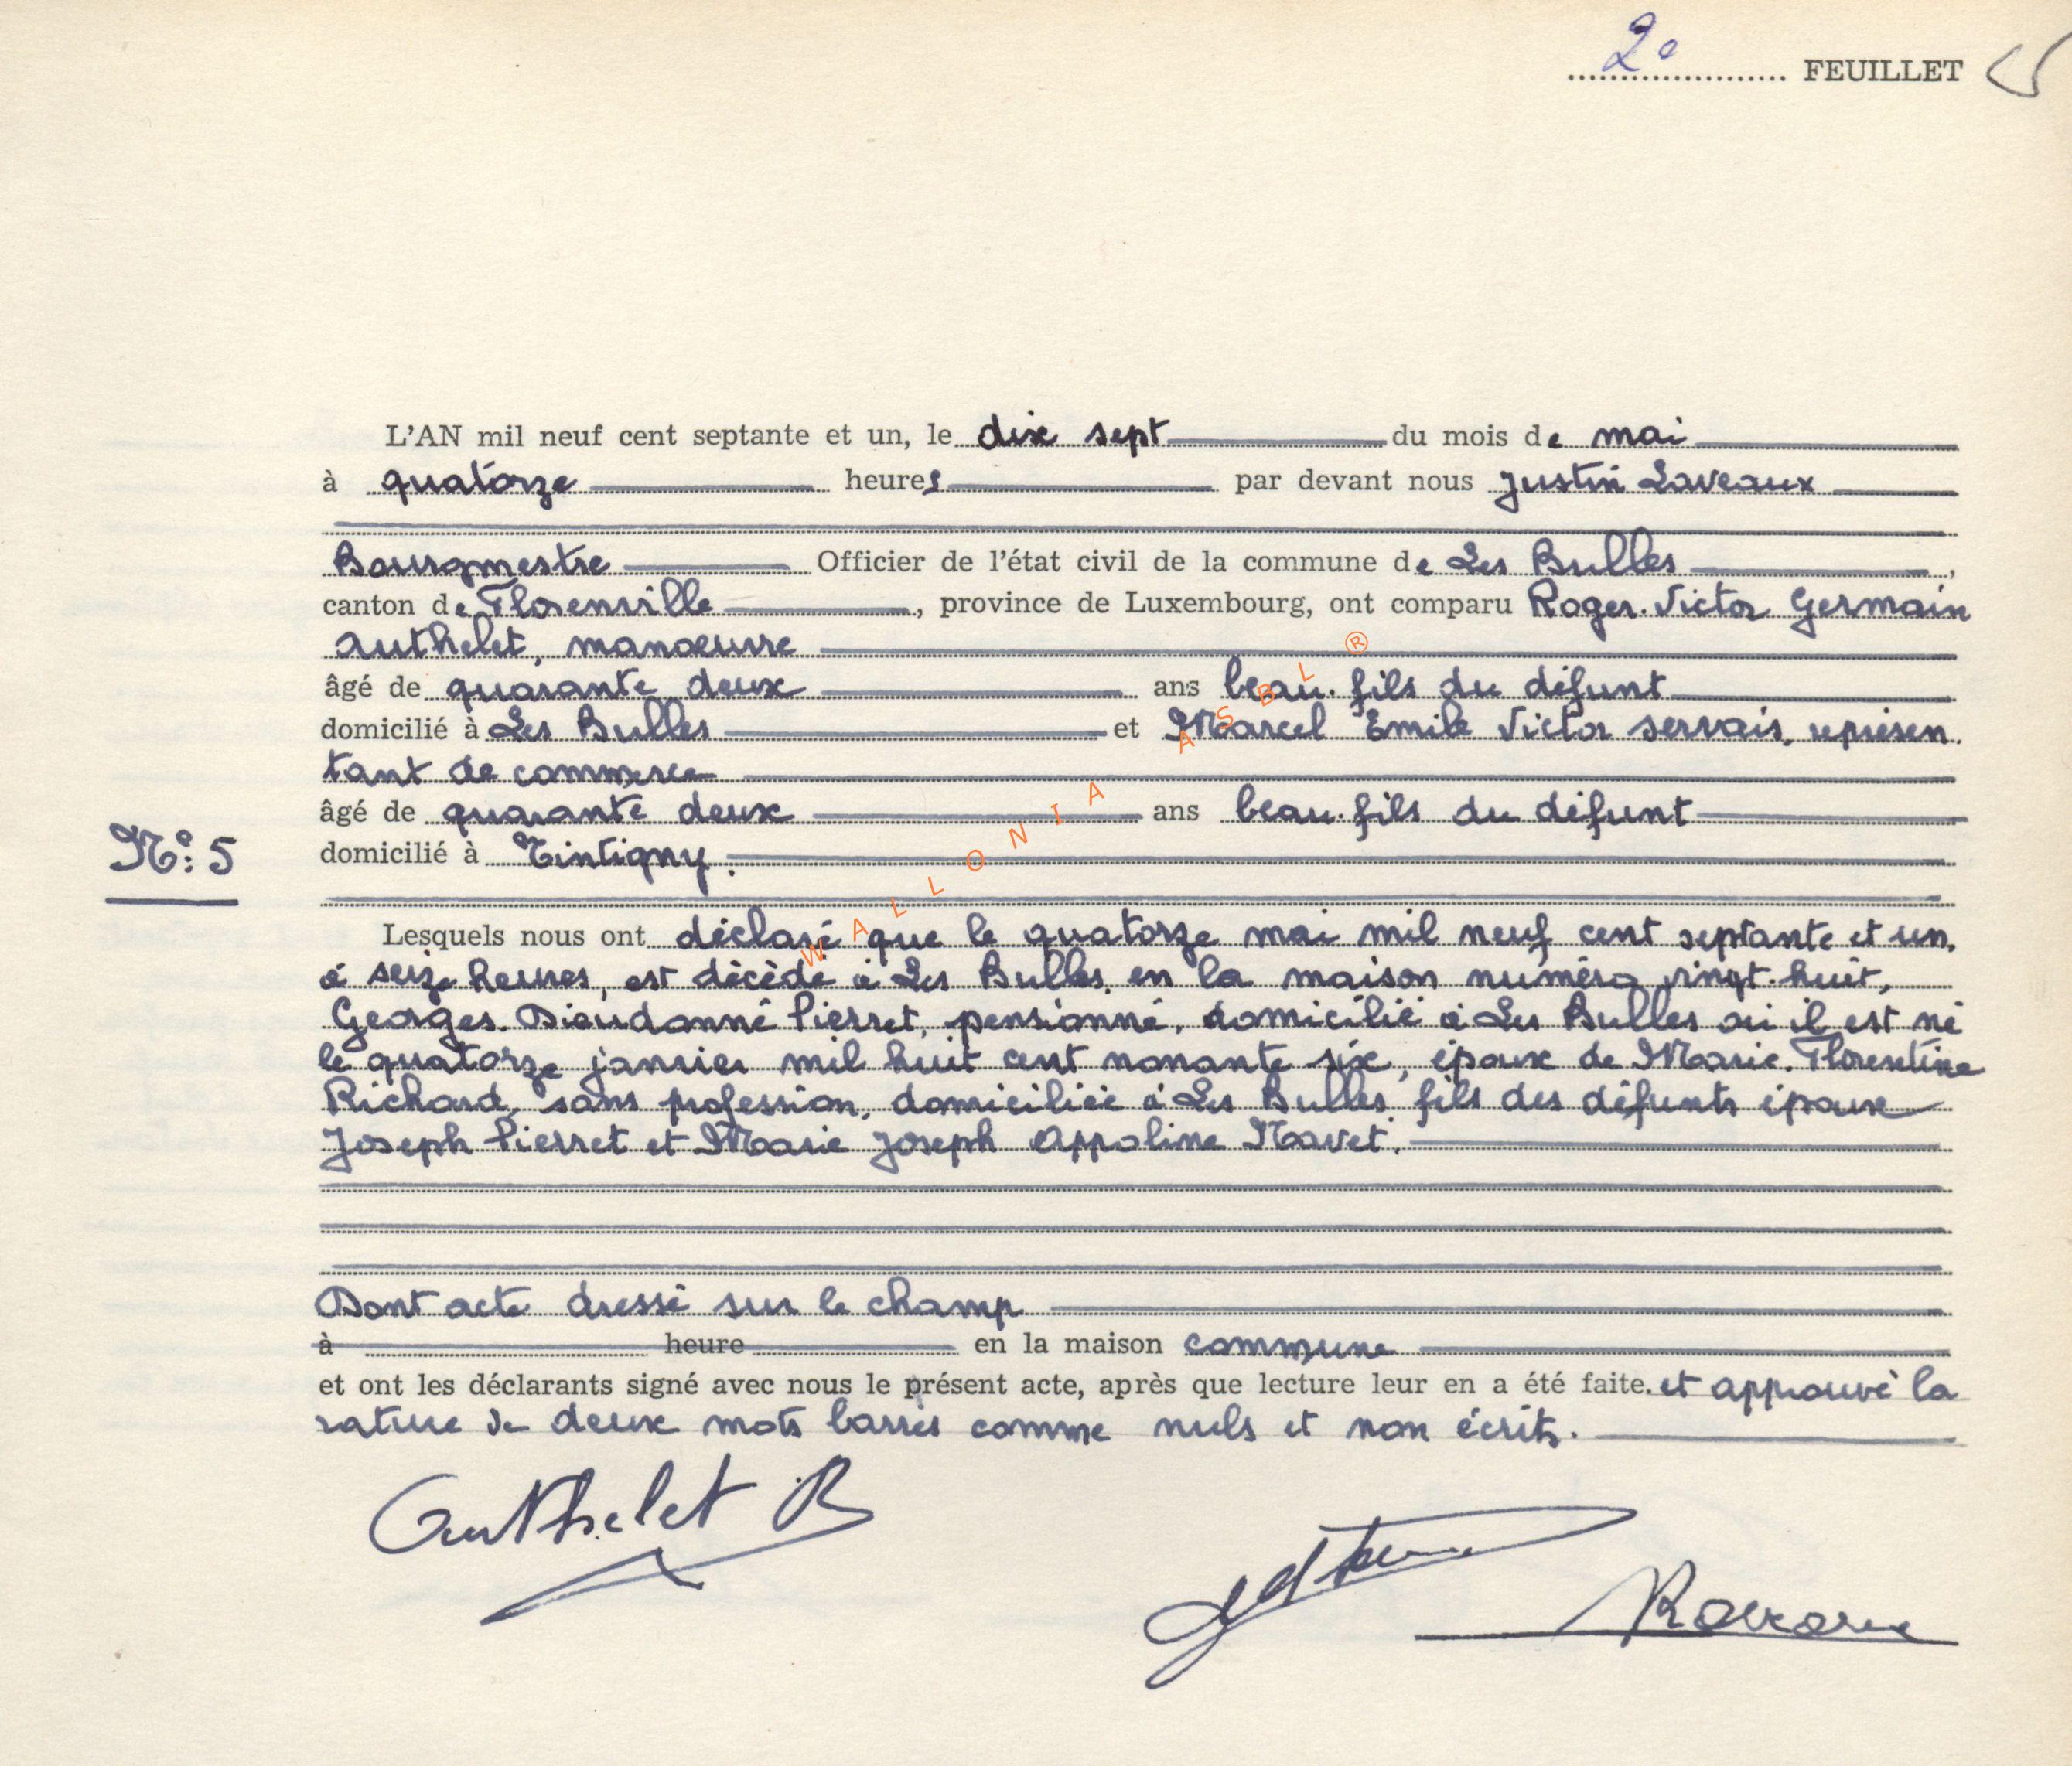 2e FEUILLET
L'AN mil neuf cent septante et un, le dix sept du mois de mai
à quatorze heures par devant nous Justin Laveaux
Bourgmestre Officier de l'état civil de la commune de Les Bulles,
canton de Florenville, province de Luxembourg, ont comparu Roger. Victor Germain
Authelet, manoeuvre
âgé de quarante deux ans beau-fils du défunt
domicilié à Les Bulles et Marcel Emile Victor Servais, représen
tant de commerce
âgé de quarante deux ans beau-fils du défunt
N°: 5
domicilié à Tintigny.
Lesquels nous ont déclaré que le quatorze mai mil neuf cent septante et un,
à seize heures, est décédé à Les Bulles, en la maison numéro vingt-huit,
Georges. Dieudonné Pierret, pensionné, domicilié à Les Bulles où il est né
le quatorze janvier mil huit cent nonante six, époux de Marie. Florentine
Richard, sans profession, domiciliée à Les Bulles fils des défunts époux
Joseph Pierret et Marie Joseph Appoline Navet.
Dont acte dressé sur le champ
à heure en la maison commune
et ont les déclarants signé avec nous le présent acte, après que lecture leur en a été faite. et approuvé la
rature de deux mots barrés comme nuls et non écrits.
Authelet R
WALLONIA ASBL ®